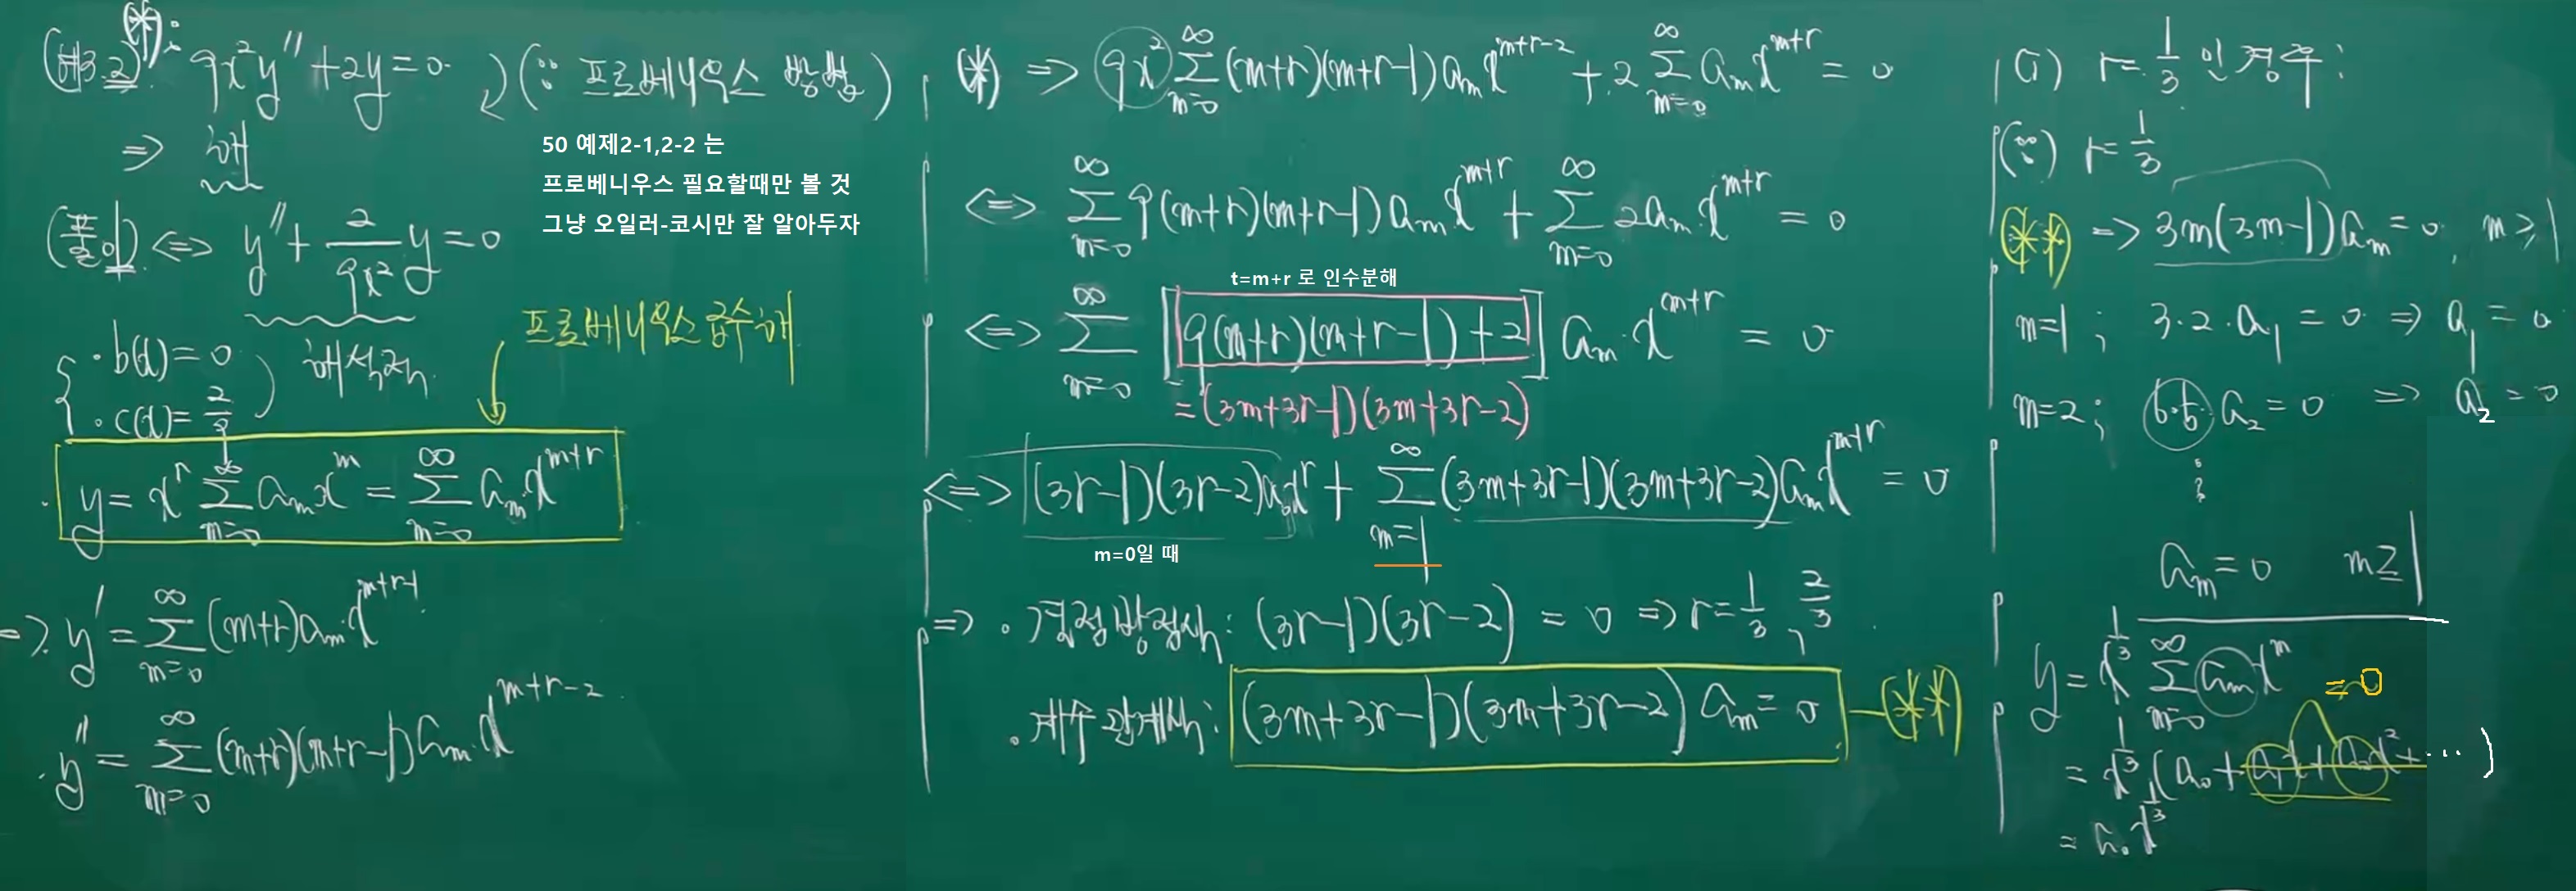 (예3.2) (*): 9x²y'' + 2y = 0 (∵ 프로베니우스 방법)
⇒ 해
50 예제2-1,2-2 는
프로베니우스 필요할때만 볼 것
그냥 오일러-코시만 잘 알아두자
(풀이) <=> y'' + 2/(9x²) y = 0
· b(x) = 0
· c(x) = 2/9
해석적
프로베니우스 급수해
y = x^r Σ_{m=0}^{∞} a_m x^m = Σ_{m=0}^{∞} a_m x^{m+r}
⇒ y' = Σ_{m=0}^{∞} (m+r) a_m x^{m+r-1}
· y'' = Σ_{m=0}^{∞} (m+r)(m+r-1) a_m x^{m+r-2}
(*) ⇒ 9x² Σ_{m=0}^{∞} (m+r)(m+r-1) a_m x^{m+r-2} + 2 Σ_{m=0}^{∞} a_m x^{m+r} = 0
<=> Σ_{m=0}^{∞} 9(m+r)(m+r-1) a_m x^{m+r} + Σ_{m=0}^{∞} 2a_m x^{m+r} = 0
t=m+r 로 인수분해
<=> Σ_{m=0}^{∞} [9(m+r)(m+r-1)+2] a_m x^{m+r} = 0
= (3m+3r-1)(3m+3r-2)
<=> (3r-1)(3r-2)a_0 x^r + Σ_{m=1}^{∞} (3m+3r-1)(3m+3r-2) a_m x^{m+r} = 0
m=0일 때
⇒ · 결정방정식: (3r-1)(3r-2) = 0 ⇒ r = 1/3, 2/3
· 계수관계식: (3m+3r-1)(3m+3r-2) a_m = 0 — (**)
(i) r = 1/3 인 경우:
(∵) r = 1/3
(**) ⇒ 3m(3m-1)a_m = 0, m ≥ 1
m=1 ; 3·2·a_1 = 0 ⇒ a_1 = 0
m=2 ; 6·5 a_2 = 0 ⇒ a_2 = 0
⋮
a_m = 0 m ≥ 1
y = x^{1/3} Σ_{m=0}^{∞} a_m x^m
= 0
= x^{1/3} (a_0 + a_1 x + a_2 x² + ···)
= a_0 x^{1/3}